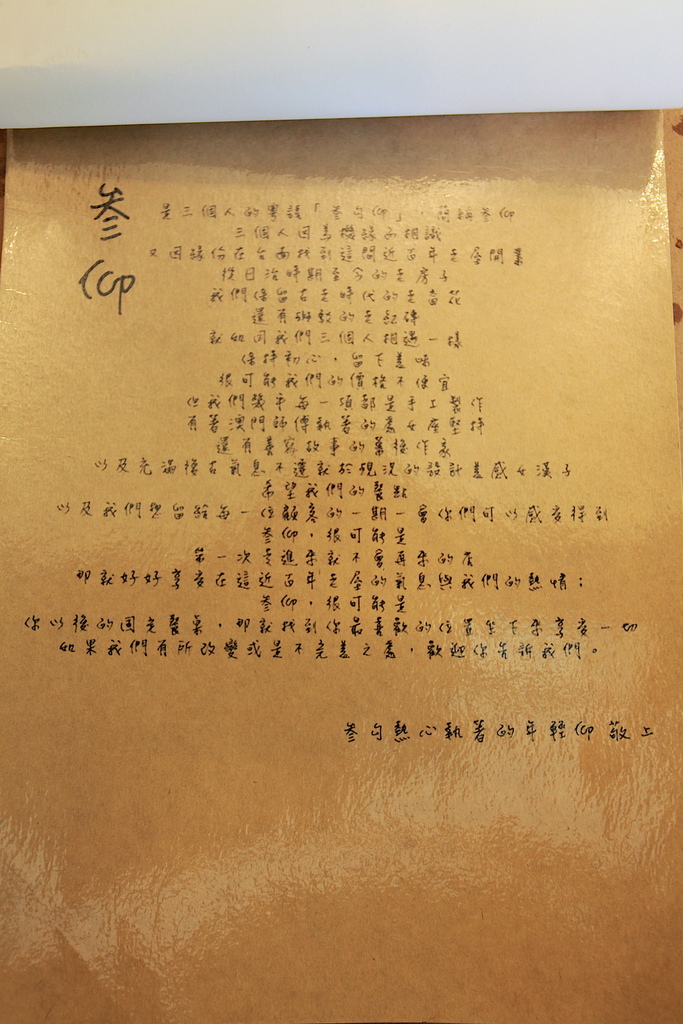 叁仰
是三個人的粵語「叁句仰」,簡稱叁仰
三個人因為機緣而相識
又因緣份在台南找到這間近百年老屋開業
從日治時期至今的老房子
我們保留古老時代的老窗花
還有斑駁的老紅磚
就如同我們三個人相遇一樣
保持初心,留下美味
很可能我們的價格不便宜
但我們幾乎每一項都是手工製作
有著澳門師傅執著的處女座堅持
還有善寫故事的舊樓作家
以及充滿復古氣息不達就於現況的設計美感女漢子
希望我們的餐點
以及我們想留給每一位顧客的一期一會你們可以感受得到
叁仰,很可能是
第一次走進來就不會再來的店
那就好好享受在這近百年老屋的氣息與我們的熱情;
叁仰,很可能是
你以後的固定餐桌,那就找到你最喜歡的位置坐下來享受一切
如果我們有所改變或是不完美之處,歡迎你告訴我們。
叁句熱心執著的年輕仰敬上